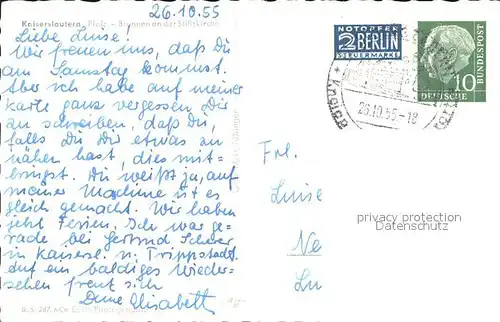 26.10.55
Kaiserslautern Pfalz - Brunnen an der Stiftskirche
Liebe Luise!
Wir freuen uns, daß Du
am Samstag kommst.
Aber ich habe auf meiner
Karte ganz vergessen Dir
zu schreiben, daß Du,
falls Du Dir etwas zu
nähen hast, dies mit-
bringst. Du weißt ja, auf
meiner Maschine ist es
gleich gemacht. Wir haben
jetzt Ferien. Ich war ge-
rade bei Gertrud
in Kaisersl. u. Trippstadt.
Auf ein baldiges Wieder-
sehen freut sich
Deine Elisabeth
NOTOPFER
2 BERLIN
STEUERMARKE
10
DEUTSCHE
BUNDESPOST
26.10.55-18
Frl.
Luise
Ne
Lu
privacy protection
Datenschutz